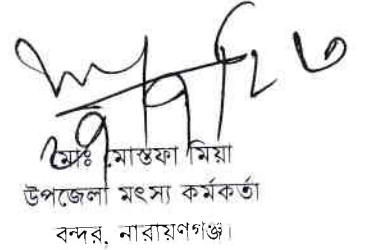 মোঃ মোস্তফা মিয়া
উপজেলা মৎস্য কর্মকর্তা
বন্দর, নারায়ণগঞ্জ।